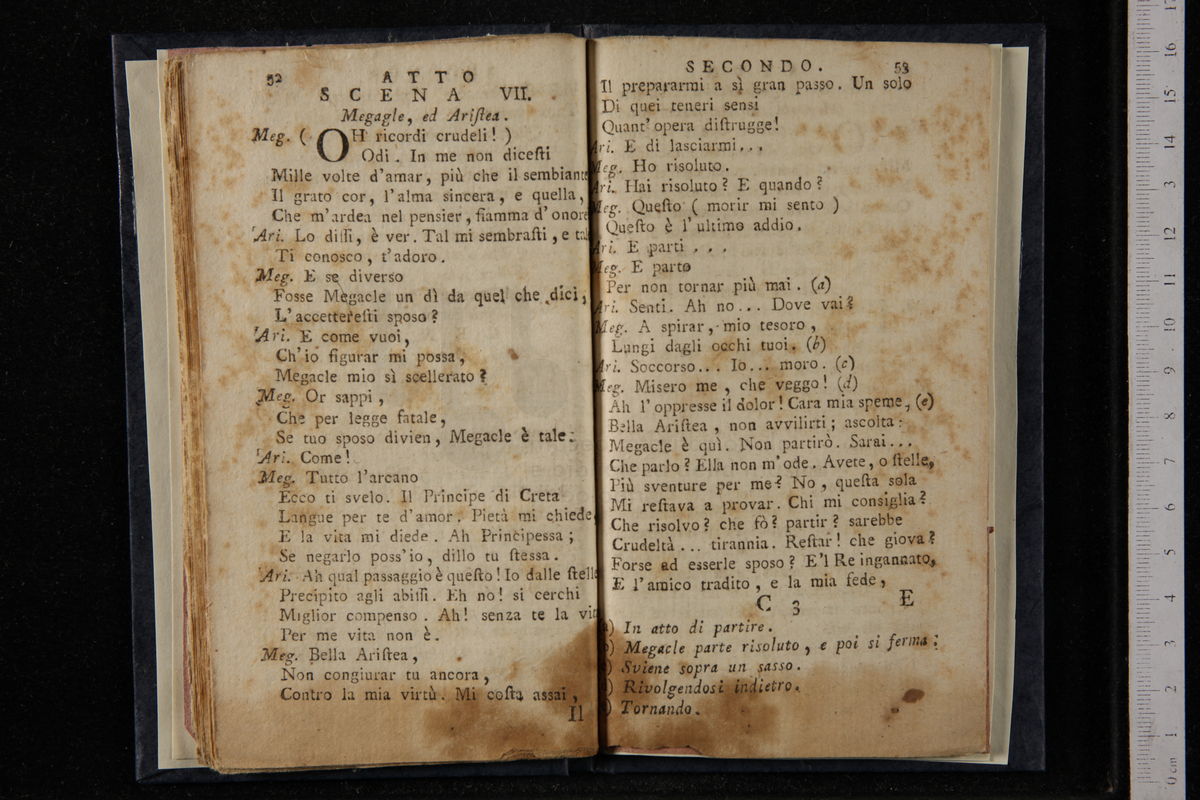 52
ATTO
SCENA VII.
Megagle, ed Ariſtea.
Meg. ( OH ricordi crudeli! )
Odi. In me non diceſti
Mille volte d'amar, più che il sembiante
Il grato cor, l'alma sincera, e quella,
Che m'ardea nel pensier, fiamma d'onore
Ari. Lo diſſi, è ver. Tal mi sembraſti, e tale
Ti conosco, t'adoro.
Meg. E se diverso
Fosse Megacle un dì da quel che dici,
L'accettereſti sposo?
Ari. E come vuoi,
Ch'io figurar mi possa,
Megacle mio sì scellerato?
Meg. Or sappi,
Che per legge fatale,
Se tuo sposo divien, Megacle è tale.
Ari. Come!
Meg. Tutto l'arcano
Ecco ti svelo. Il Principe di Creta
Langue per te d'amor. Pietà mi chiede,
E la vita mi diede. Ah Principessa;
Se negarlo poss'io, dillo tu ſtessa.
Ari. Ah qual passaggio è queſto! Io dalle ſtelle
Precipito agli abiſſi. Eh no! si cerchi
Miglior compenso. Ah! senza te la vita
Per me vita non è.
Meg. Bella Ariſtea,
Non congiurar tu ancora,
Contro la mia virtù. Mi coſta assai,
Il
SECONDO.
53
Il prepararmi a sì gran passo. Un solo
Di quei teneri sensi
Quant' opera diſtrugge!
Ari. E di lasciarmi...
Meg. Ho risoluto.
Ari. Hai risoluto? E quando?
Meg. Queſto ( morir mi sento )
Queſto è l'ultimo addio.
Ari. E parti ...
Meg. E parto
Per non tornar più mai. (a)
Ari. Senti. Ah no... Dove vai?
Meg. A spirar, mio tesoro,
Lungi dagli occhi tuoi. (b)
Ari. Soccorso... Io... moro. (c)
Meg. Misero me, che veggo! (d)
Ah l'oppresse il dolor! Cara mia speme, (e)
Bella Ariſtea, non avvilirti; ascolta:
Megacle è quì. Non partirò. Sarai...
Che parlo? Ella non m'ode. Avete, o ſtelle,
Più sventure per me? No, queſta sola
Mi reſtava a provar. Chi mi consiglia?
Che risolvo? che fò? partir? sarebbe
Crudeltà... tirannia. Reſtar! che giova?
Forse ad esserle sposo? E'l Re ingannato,
E l'amico tradito, e la mia fede,
C 3
E
(a) In atto di partire.
(b) Megacle parte risoluto, e poi si ferma;
(c) Sviene sopra un sasso.
(d) Rivolgendosi indietro.
(e) Tornando.